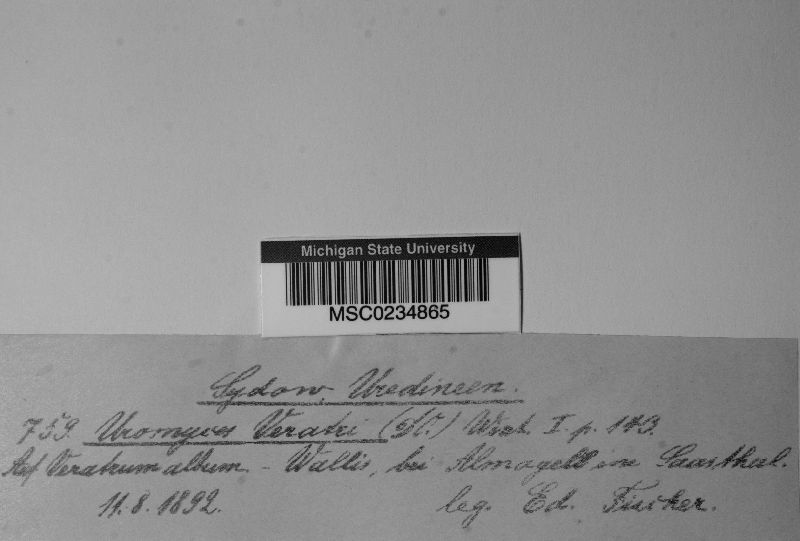 Michigan State University
MSC0234865
Sydow, Uredineen.
759. Uromyces Veratri (DC.) I. p. 149.
Auf Veratrum album. - Wallis, bei Almagell im Saasthal.
11.8.1892. leg. Ed. Fischer.